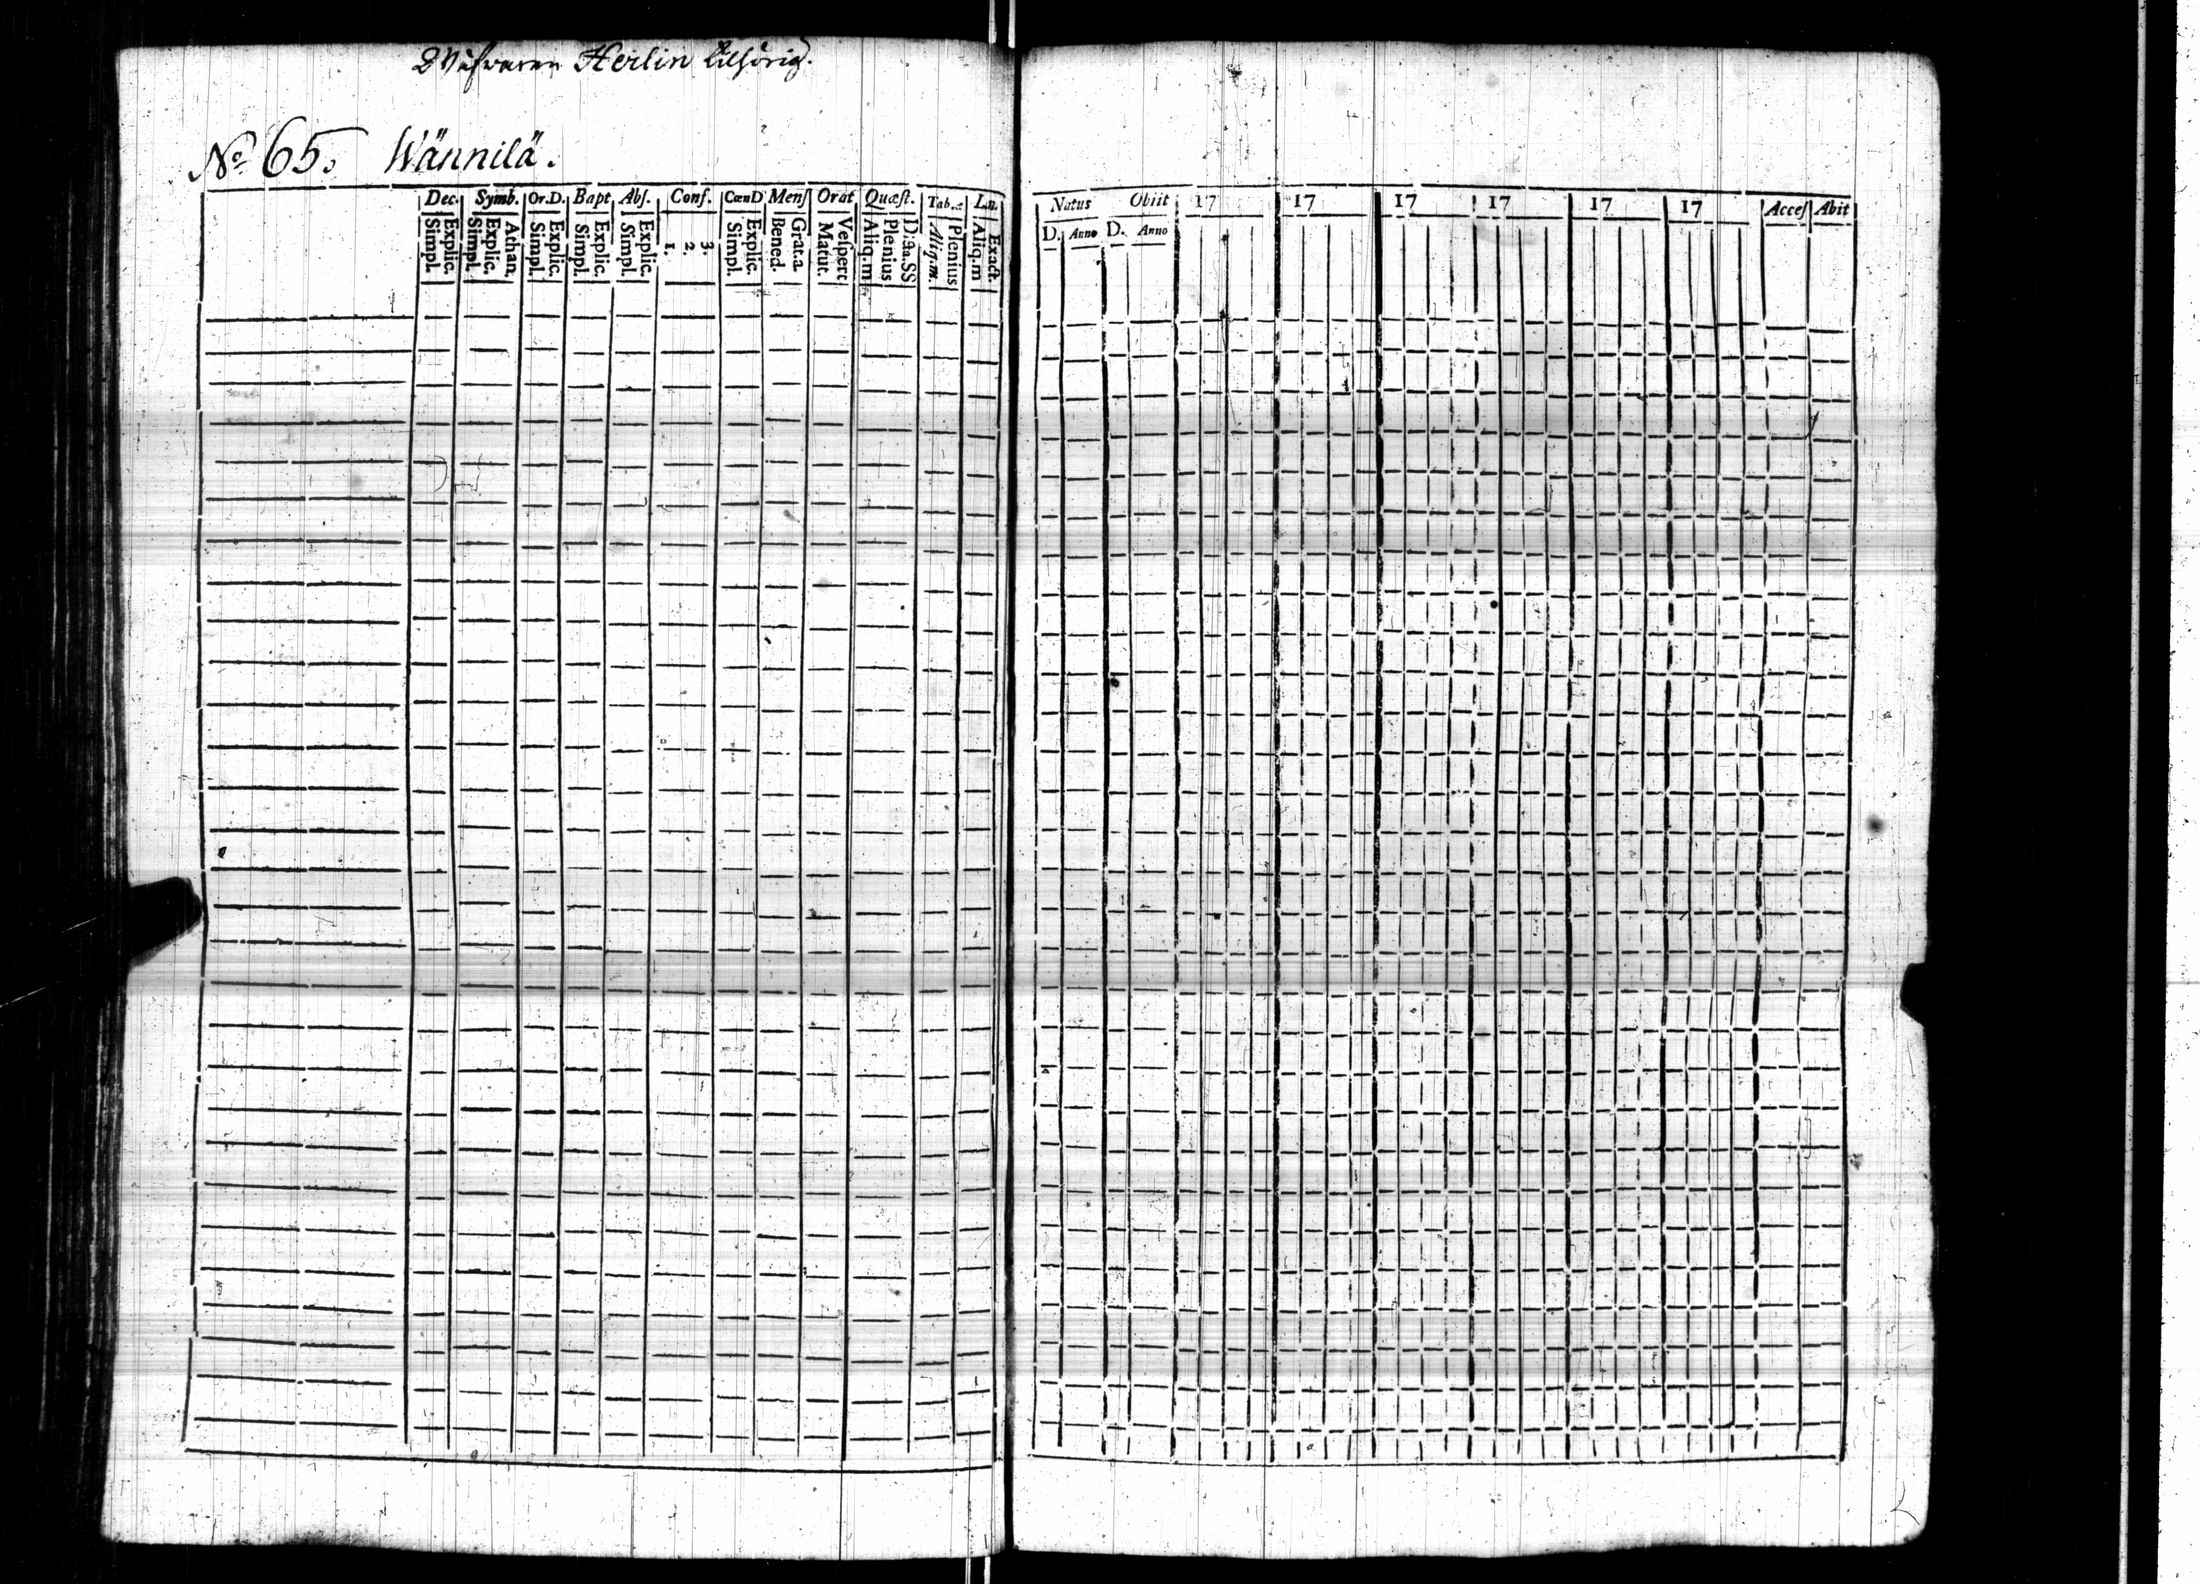 Heilin tilhörig.
No 65. Wännilä.
Dec. Symb. Or.D. Bapt Abſ. Conf. CœnD Menſ Orat Quæſt. Tab.æ L.n.
Explic. Simpl. Athan. Explic. Simpl. Explic. Simpl. Explic. Simpl. Explic. Simpl. 3. 2. 1. Explic. Simpl. Grat.a. Bened. Veſpert Matut. D:ɑa.SS Plenius Aliq.m Plenius Aliq.m. Exact. Aliq.m
Natus Obiit 17 17 17 17 17 17 Acceſ Abit
D. Anno D. Anno